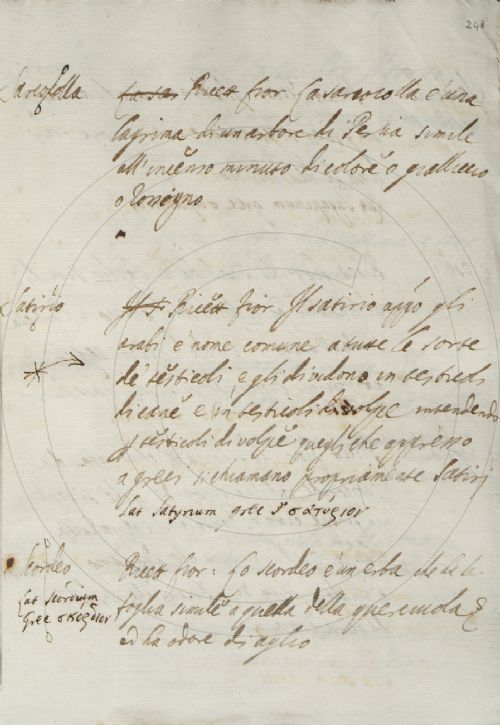 248
Sarcocolla
Ricett fior. La sarcocolla è una
lagrima di un arbore di Persia simile
all'incenso minuto di colore o gialliccio
o Rossigno.
Satirio
Ricett fior Il satirio appò gli
arabi è nome comune a tutte le sorte
de testicoli, e gli dividono in testicoli
di cane e in testicoli di volpe intendendo
testicoli di volpe quegli che appresso
a greci si chiamano propriamente Satirj
Lat Satyrium grec σατύριον
Scordeo
Lat scordium
Grec σκόρδιον
Ricett fior: Lo scordeo è un erba che ha le
foglia simile a quella della querciuola
ed ha odore di aglio